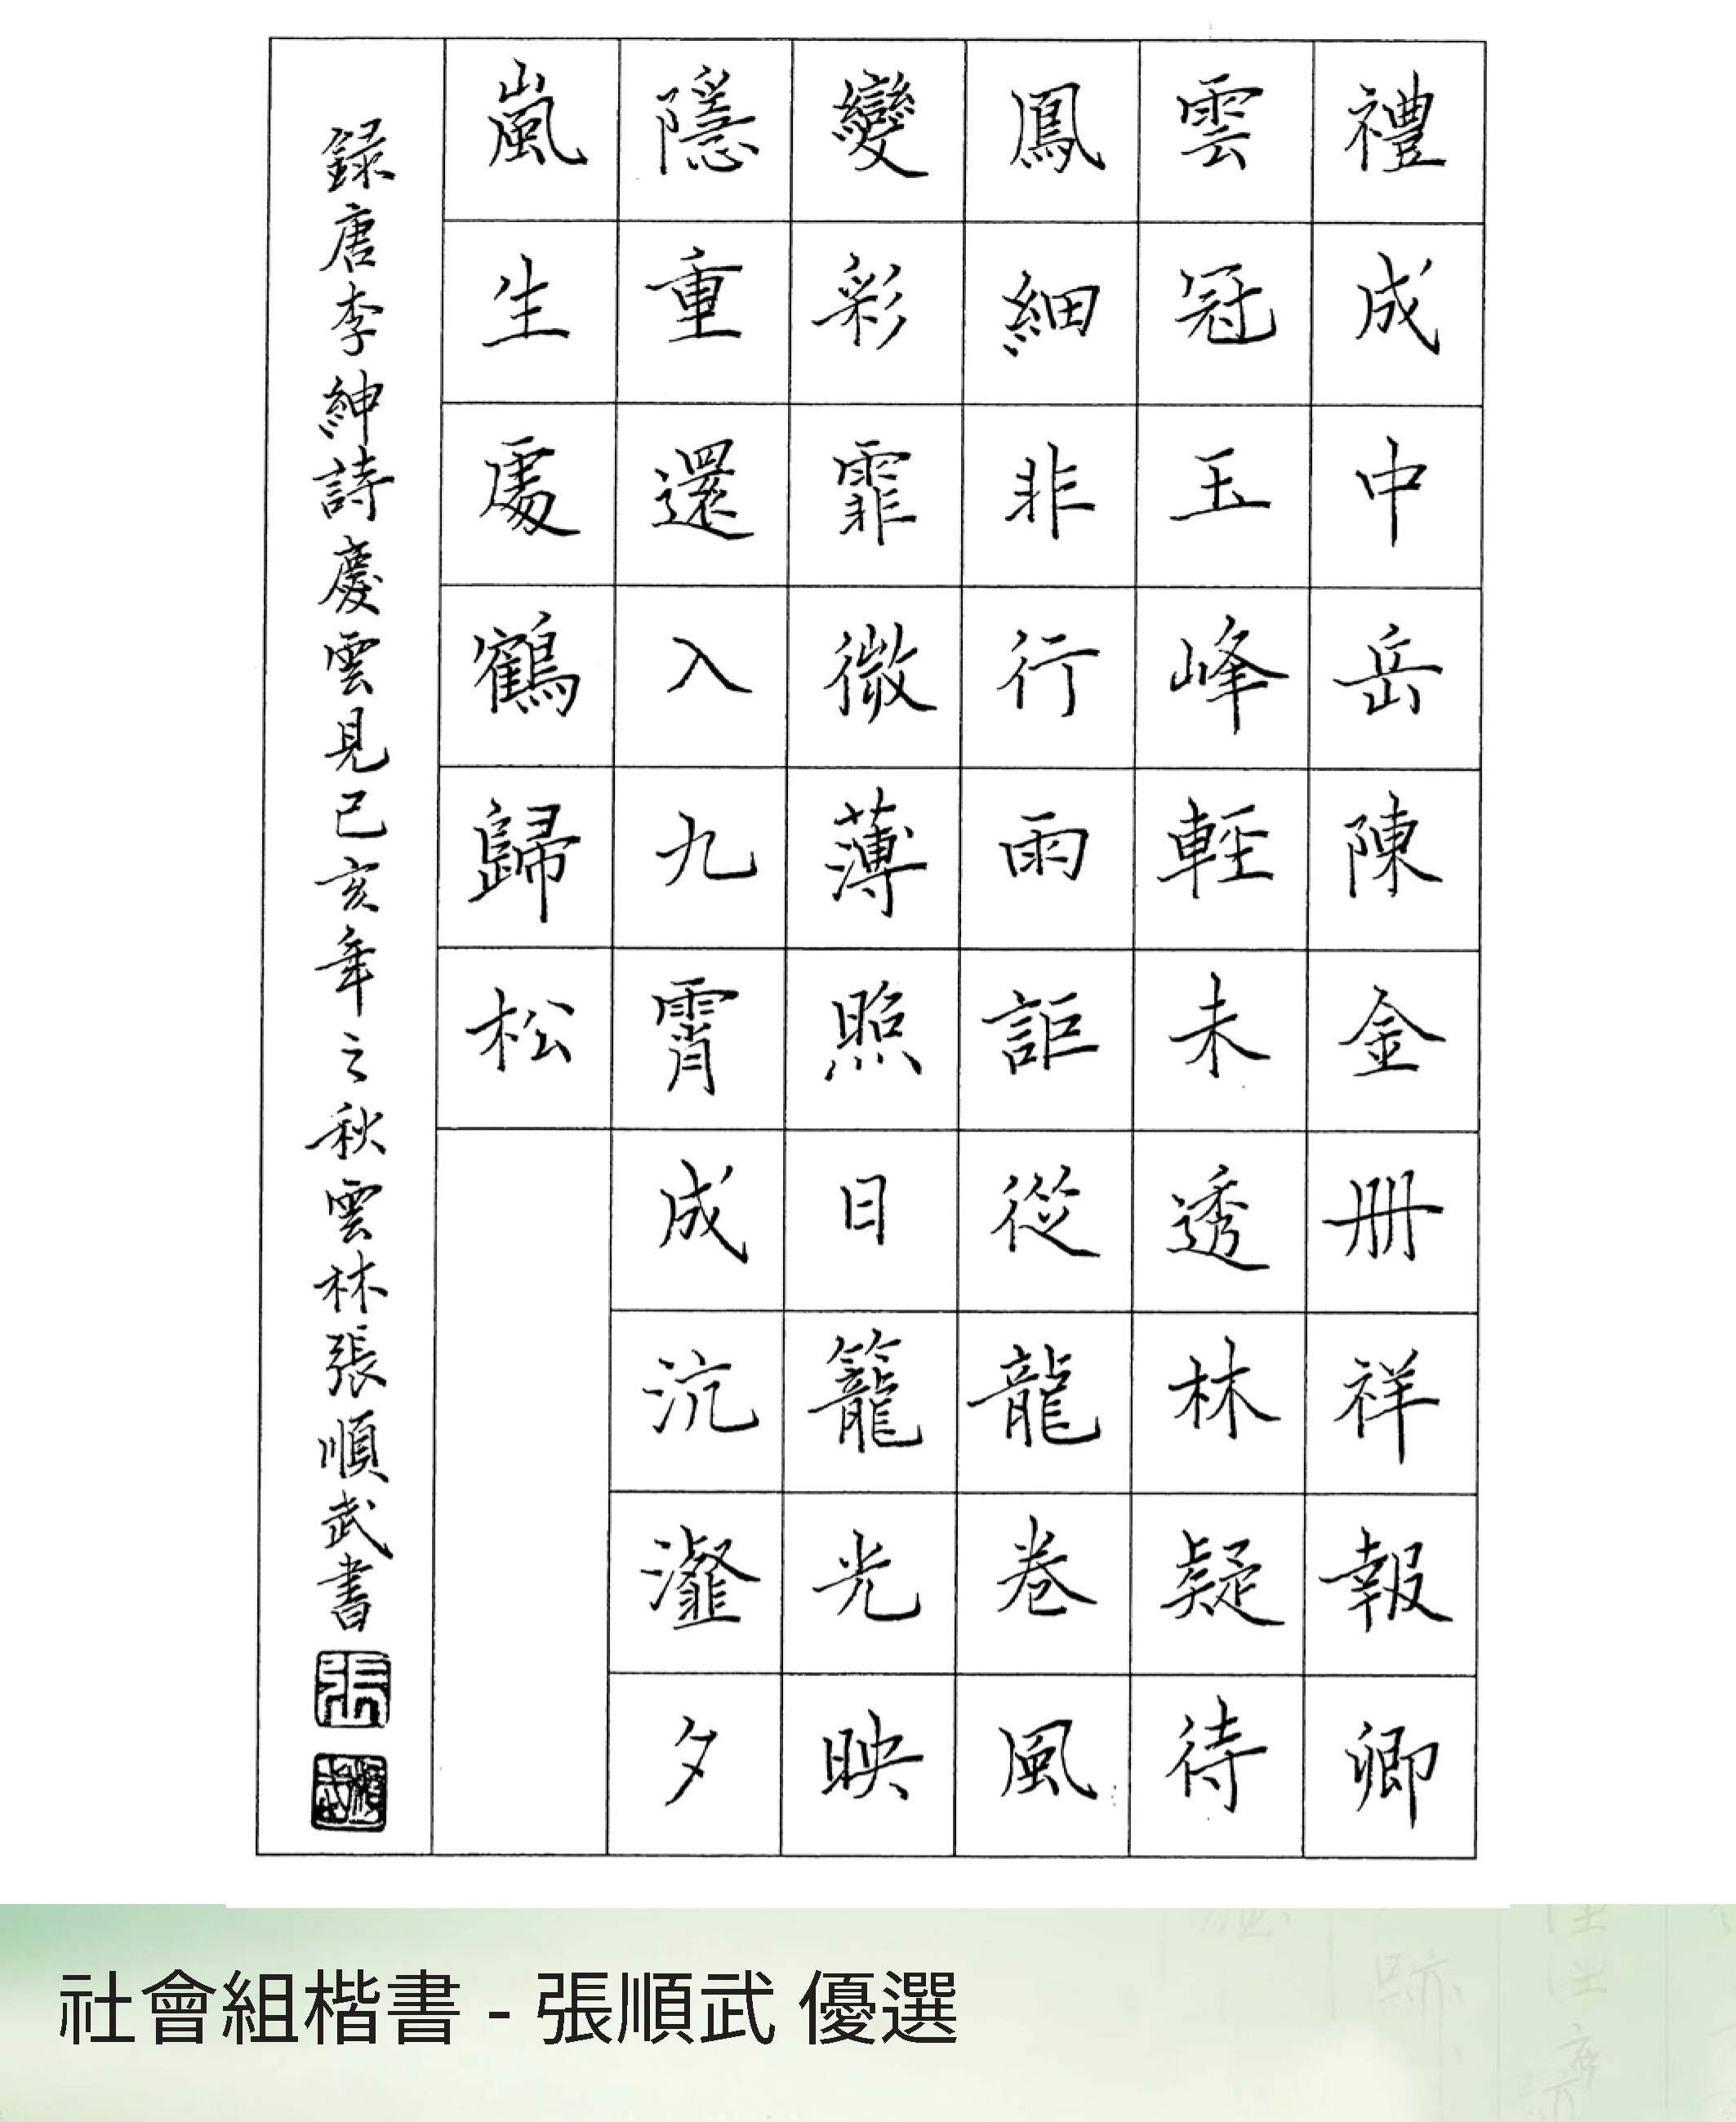 禮成中岳陳金册祥報卿
雲冠玉峰輕未透林疑待
鳳細非行雨詎從龍卷風
變彩霏微薄照日籠光映
隱重還入九霄成沆瀣夕
嵐生處鶴歸松
錄唐李紳詩慶雲見己亥年之秋雲林張順武書
張
順武
社會組楷書 - 張順武 優選